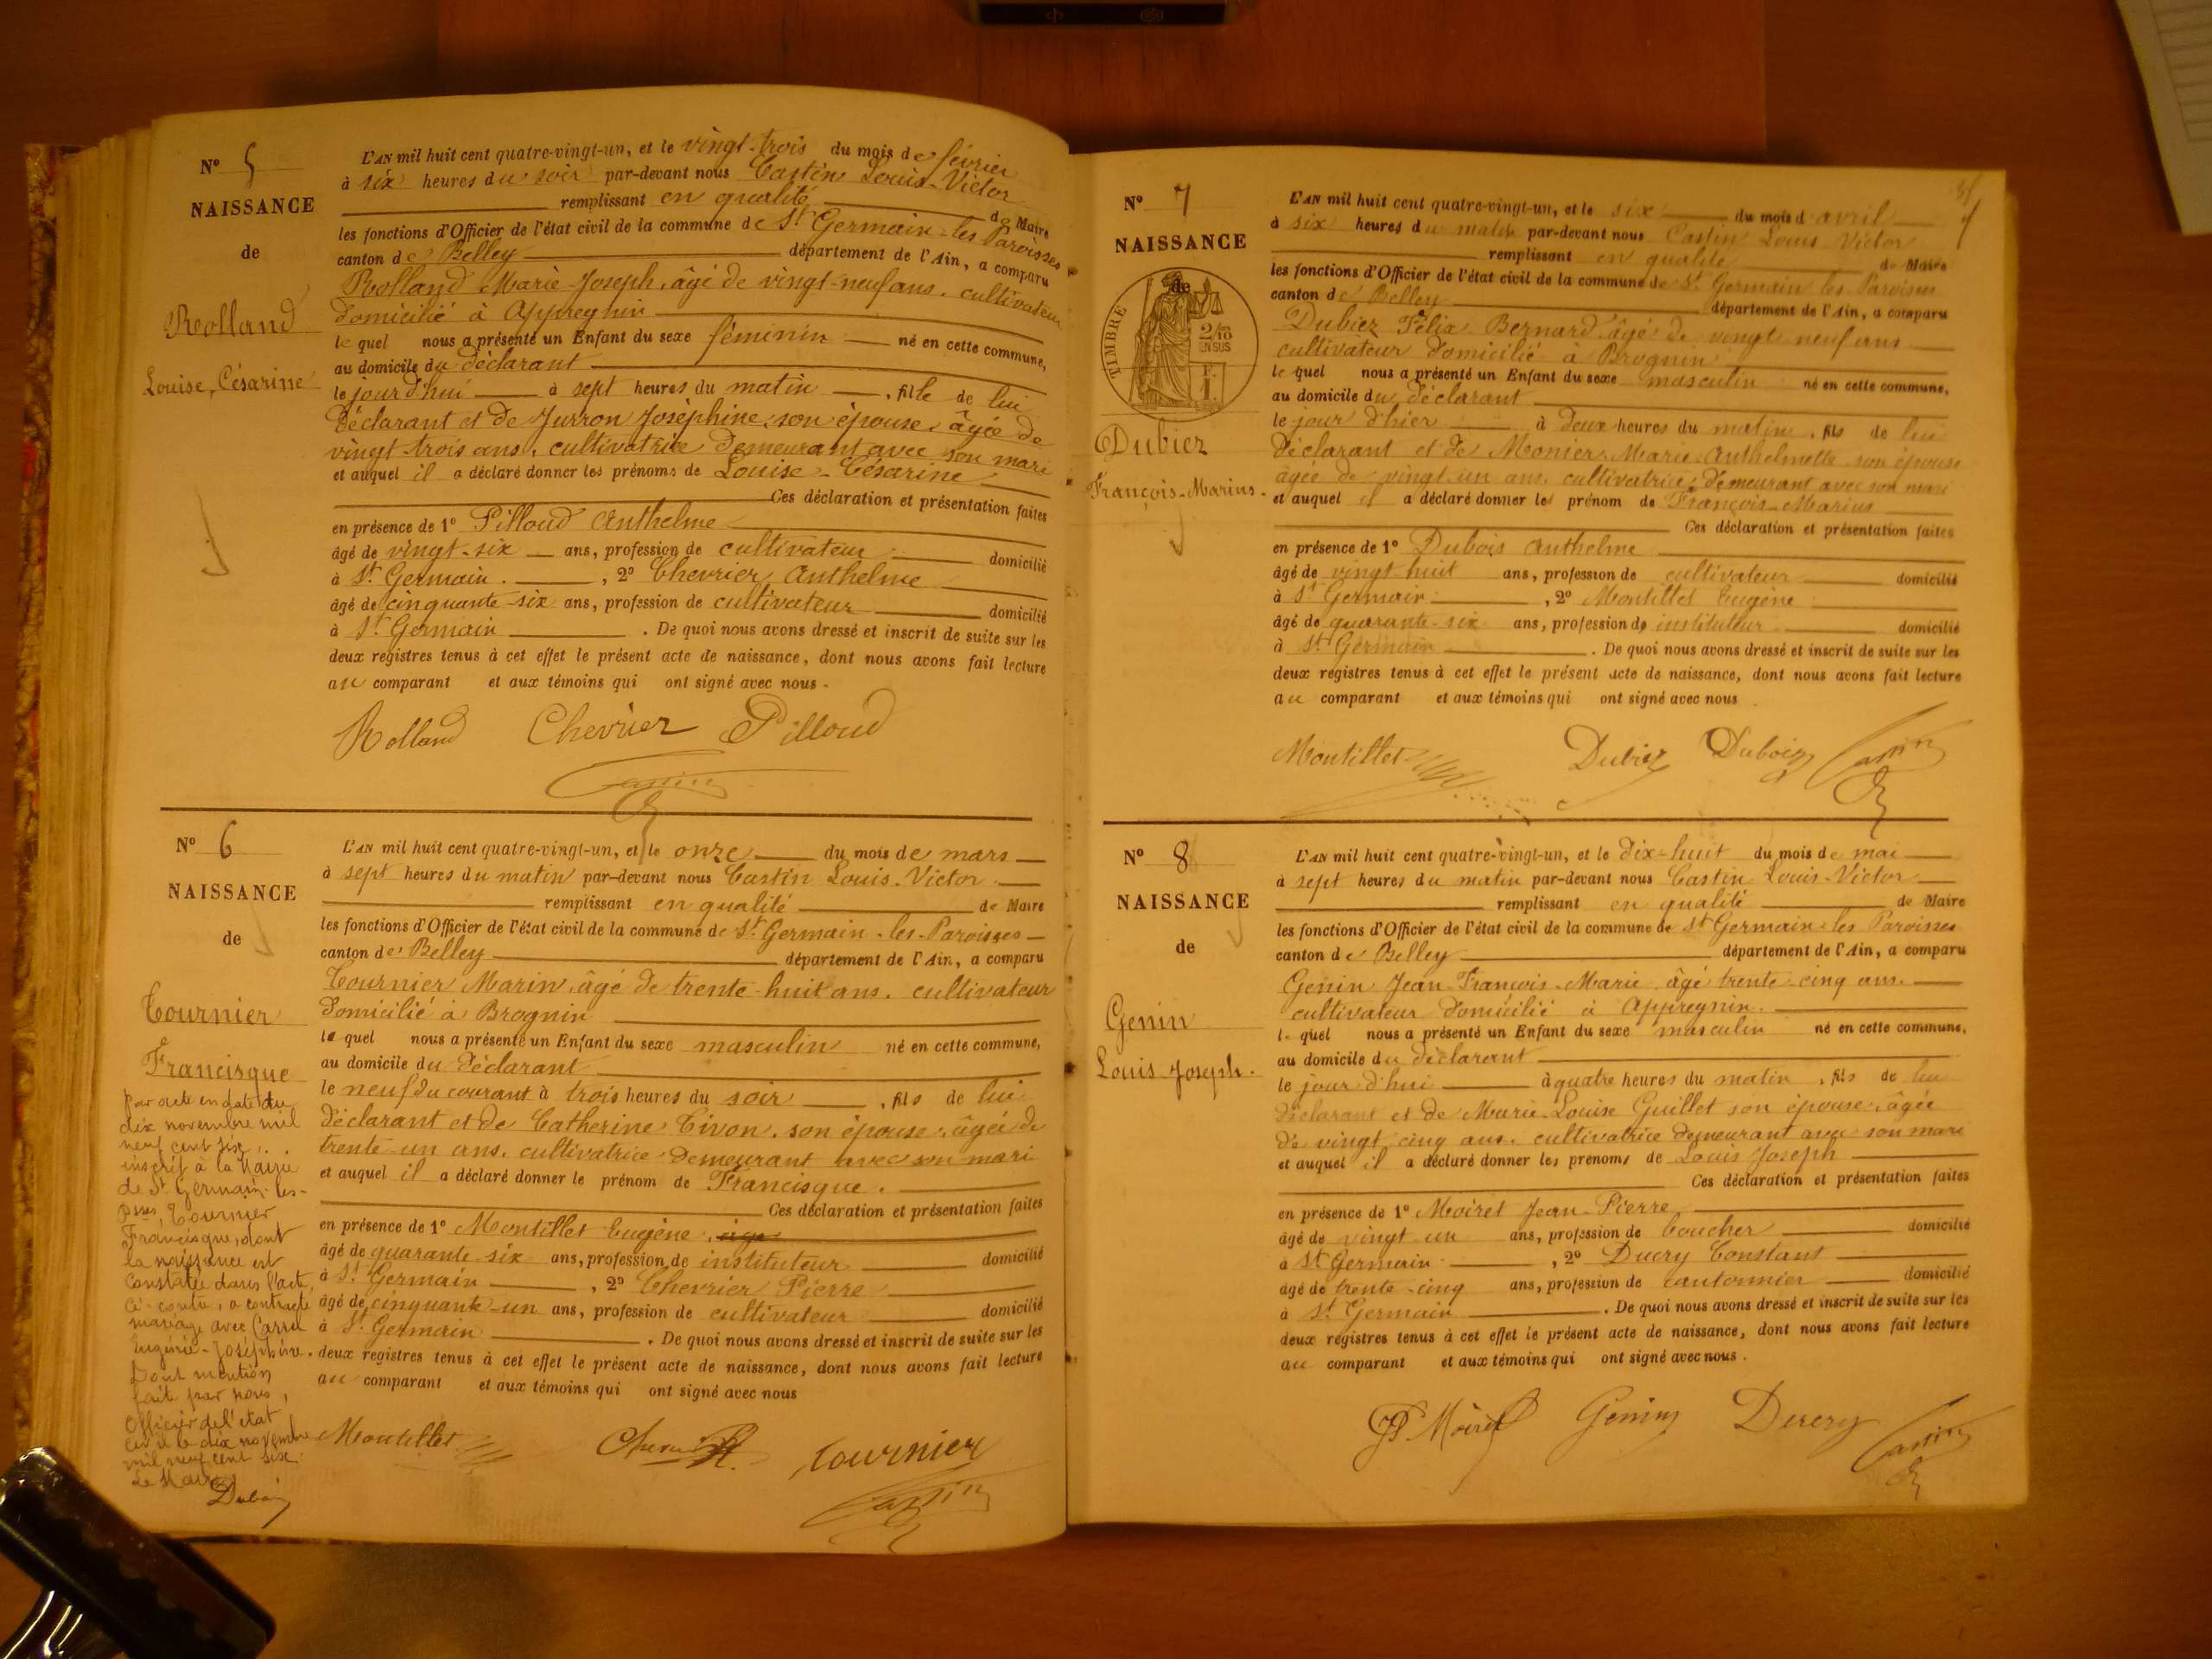 N° 5
NAISSANCE
de
Rolland
Louise, Césarine
L'AN mil huit cent quatre-vingt-un, et le vingt-trois du mois de février
à six heures du soir par-devant nous Castin Louis-Victor
remplissant en qualité de Maire
les fonctions d'Officier de l'état civil de la commune de St Germain-les Paroisses
canton de Belley département de l'Ain, a comparu
Rolland Marie-Joseph, âgé de vingt-neuf ans, cultivateur
domicilié à Appregnin
le quel nous a présenté un Enfant du sexe féminin né en cette commune,
au domicile du déclarant
le jour d'hui à sept heures du matin, fille de lui
déclarant et de Jurron Joséphine, son épouse, âgée de
vingt trois ans, cultivatrice demeurant avec son mari
et auquel il a déclaré donner les prénoms de Louise-Césarine
Ces déclaration et présentation faites
en présence de 1° Pilloud Anthelme
âgé de vingt-six ans, profession de cultivateur domicilié
à St Germain. , 2° Chevrier Anthelme
âgé de cinquante-six ans, profession de cultivateur domicilié
à St Germain . De quoi nous avons dressé et inscrit de suite sur les
deux registres tenus à cet effet le présent acte de naissance, dont nous avons fait lecture
au comparant et aux témoins qui ont signé avec nous.
Rolland Chevrier Pilloud
Castin
N° 6
NAISSANCE
de
Tournier
Francisque
par acte en date du
dix novembre mil
neuf cent six,
inscrit à la Mairie
de St Germain-les-
Psses, Tournier
Francisque, dont
la naissance est
constatée dans l'acte
ci-contre, a contracté
mariage avec Carrel
Eugénie-Joséphine.
Dont mention
faite par nous,
Officier de l'état
civil le dix novembre
mil neuf cent six.
Le Maire
Dubois
L'AN mil huit cent quatre-vingt-un, et le onze du mois de mars
à sept heures du matin par-devant nous Castin Louis-Victor
remplissant en qualité de Maire
les fonctions d'Officier de l'état civil de la commune de St Germain-les-Paroisses
canton de Belley département de l'Ain, a comparu
Tournier Marin, âgé de trente-huit ans, cultivateur
domicilié à Brognin
le quel nous a présenté un Enfant du sexe masculin né en cette commune,
au domicile du déclarant
le neuf du courant à trois heures du soir, fils de lui
déclarant et de Catherine Tivon, son épouse, âgée de
trente-un ans, cultivatrice demeurant avec son mari
et auquel il a déclaré donner le prénom de Francisque.
Ces déclaration et présentation faites
en présence de 1° Montillet Eugène,
âgé de quarante-six ans, profession de instituteur domicilié
à St Germain , 2° Chevrier Pierre
âgé de cinquante-un ans, profession de cultivateur domicilié
à St Germain . De quoi nous avons dressé et inscrit de suite sur les
deux registres tenus à cet effet le présent acte de naissance, dont nous avons fait lecture
au comparant et aux témoins qui ont signé avec nous
Montillet Tournier
Castin
7
N° 7
NAISSANCE
de
TIMBRE
2/10 EN SUS
F. 1.
Dubiez
François-Marius.
L'AN mil huit cent quatre-vingt-un, et le six du mois d'avril
à six heures du matin par-devant nous Castin Louis Victor
remplissant en qualité de Maire
les fonctions d'Officier de l'état civil de la commune de St Germain les Paroisses
canton de Belley département de l'Ain, a comparu
Dubiez Félix Bernard âgé de vingt neuf ans
cultivateur domicilié à Brognin
le quel nous a présenté un Enfant du sexe masculin né en cette commune,
au domicile du déclarant
le jour d'hier à deux heures du matin, fils de lui
déclarant et de Monier Marie-Anthelmette son épouse
âgée de vingt-un ans, cultivatrice demeurant avec son mari
et auquel il a déclaré donner les prénom de François-Marius
Ces déclaration et présentation faites
en présence de 1° Dubois Anthelme
âgé de vingt huit ans, profession de cultivateur domicilié
à St Germain , 2° Montillet Eugène
âgé de quarante-six ans, profession de instituteur domicilié
à St Germain . De quoi nous avons dressé et inscrit de suite sur les
deux registres tenus à cet effet le présent acte de naissance, dont nous avons fait lecture
au comparant et aux témoins qui ont signé avec nous
Montillet Dubiez Dubois Castin
N° 8
NAISSANCE
de
Genin
Louis Joseph.
L'AN mil huit cent quatre-vingt-un, et le dix-huit du mois de mai
à sept heures du matin par-devant nous Castin Louis-Victor
remplissant en qualité de Maire
les fonctions d'Officier de l'état civil de la commune de St Germain-les Paroisses
canton de Belley département de l'Ain, a comparu
Genin Jean-François-Marie, âgé trente-cinq ans.
cultivateur domicilié à Appregnin.
le quel nous a présenté un Enfant du sexe masculin né en cette commune,
au domicile du déclarant
le jour d'hui à quatre heures du matin, fils de lui
déclarant et de Marie-Louise Guillet son épouse, âgée
de vingt cinq ans, cultivatrice demeurant avec son mari
et auquel il a déclaré donner les prénoms de Louis Joseph
Ces déclaration et présentation faites
en présence de 1° Moiret Jean-Pierre
âgé de vingt un ans, profession de boucher domicilié
à St Germain , 2° Ducry Constant
âgé de trente-cinq ans, profession de cantonnier domicilié
à St Germain . De quoi nous avons dressé et inscrit de suite sur les
deux registres tenus à cet effet le présent acte de naissance, dont nous avons fait lecture
au comparant et aux témoins qui ont signé avec nous.
JP Moiret Genin Ducry Castin